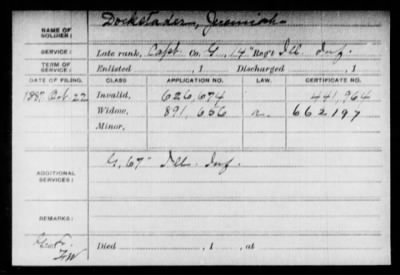 NAME OF SOLDIER: Dockstader, Jeremiah
SERVICE: Late rank, Capt Co. G, 14" Reg't Ill. Inf.
TERM OF SERVICE: Enlisted , 1 Discharged , 1
DATE OF FILING. CLASS APPLICATION NO. LAW. CERTIFICATE NO.
1887 Oct. 22 Invalid, 626,674 441,964
Widow, 891,656 662197
Minor,
ADDITIONAL SERVICES: G, 67" Ill. Inf.
REMARKS:
Died , 1 , at